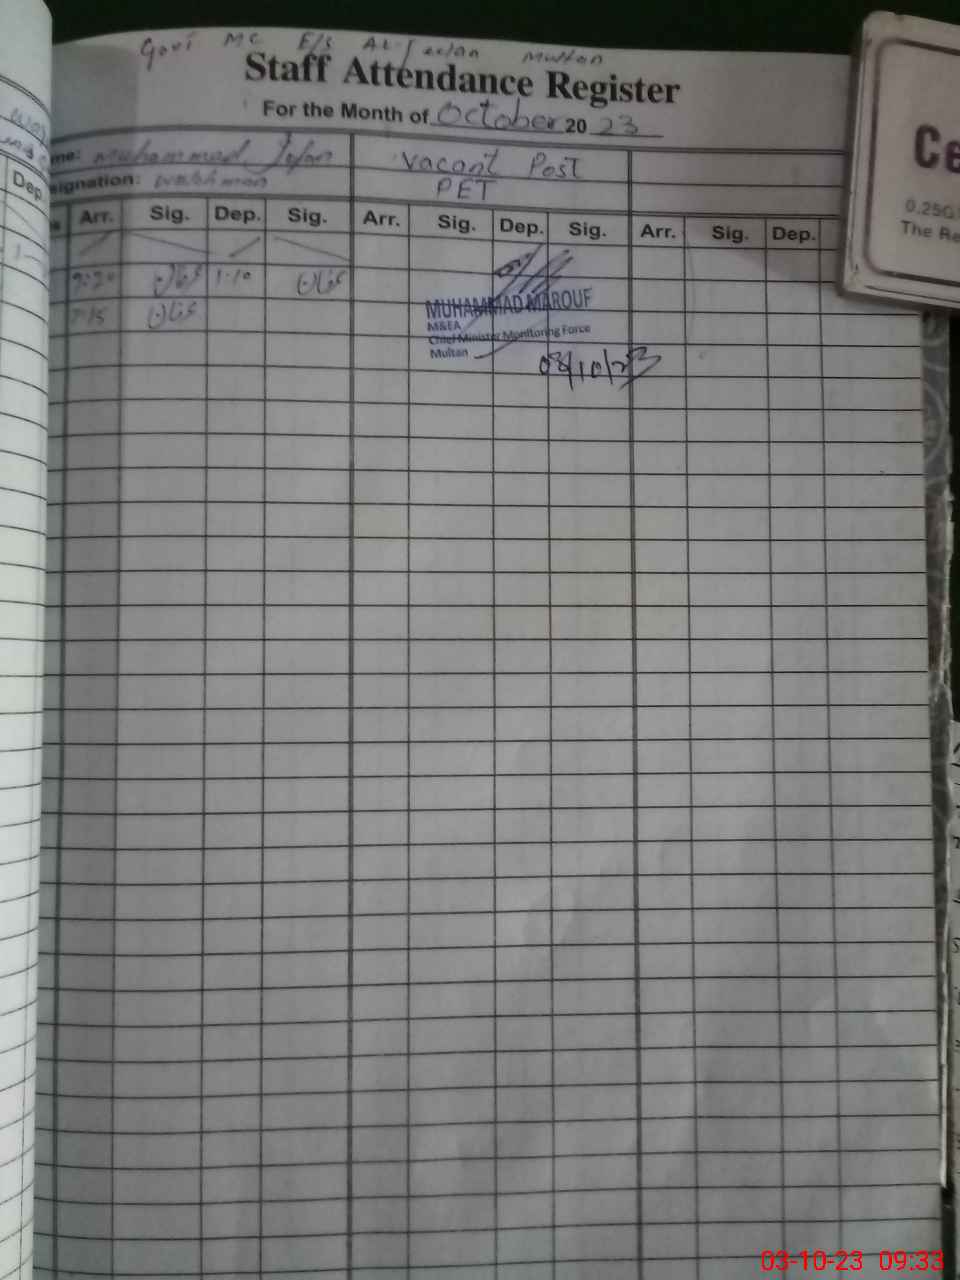 Govt MC E/S Multan
Staff Attendance Register
For the Month of October 20 23
me: Muhammad
Vacant Post
signation: watchman
PET
Dep.
Arr. Sig. Dep. Sig. Arr. Sig. Dep. Sig. Arr. Sig. Dep.
1-10
MUHAMMAD MAROUF
M&EA
Chief Minister Monitoring Force
Multan
03/10/23
Ce
0.25G
The Re
03-10-23 09:33